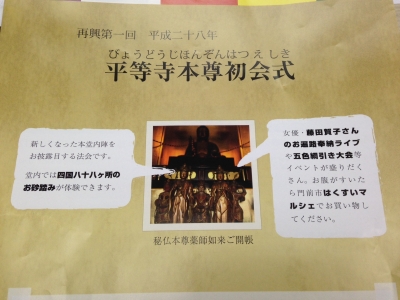 再興第一回　平成二十八年
びょうどうじほんぞんはつえしき
平等寺本尊初会式
新しくなった本堂内陣を
お披露目する法会です。
堂内では四国八十八ヶ所の
お砂踏みが体験できます。
女優・藤田賀子さん
のお遍路奉納ライブ
や五色綱引き大会等
イベントが盛りだく
さん。お腹がすいた
ら門前市はくすいマ
ルシェでお買い物し
てください。
秘仏本尊薬師如来ご開帳